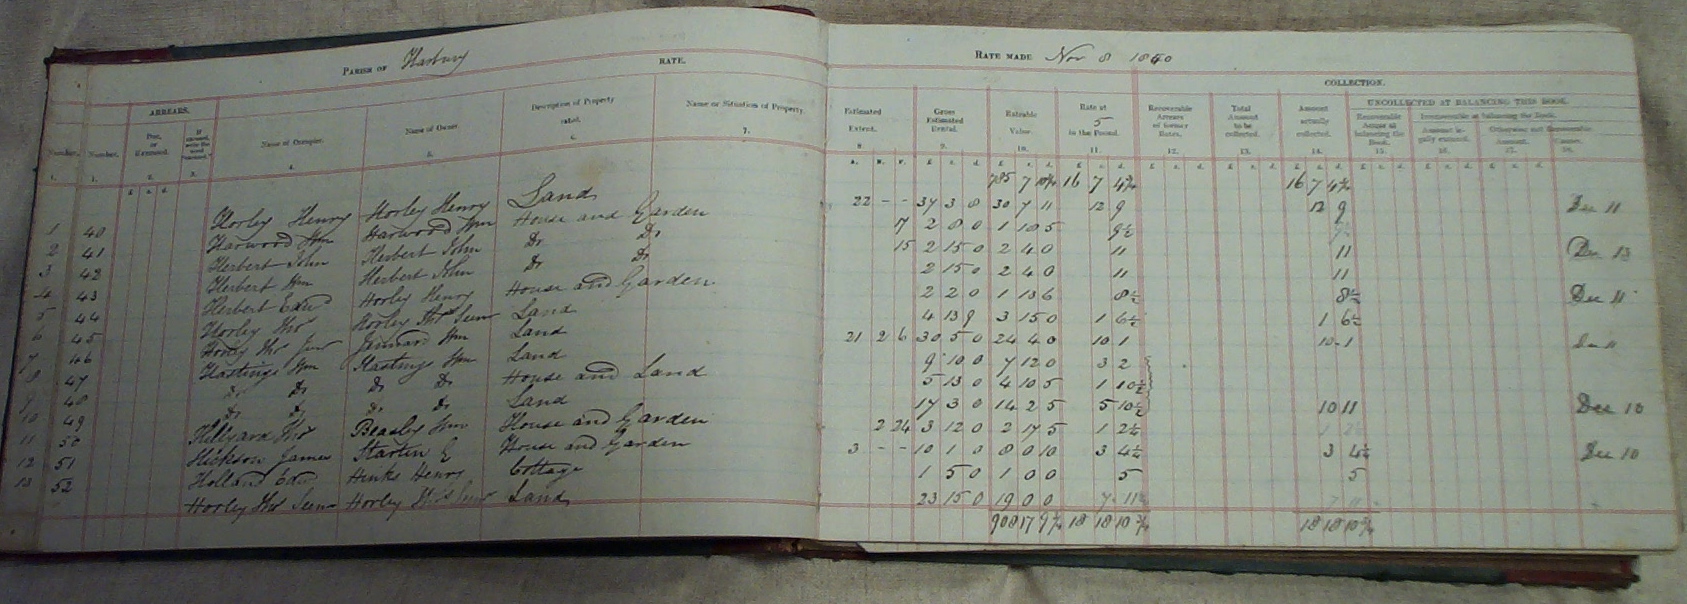 PARISH OF Harbury RATE. RATE MADE Nov 8 1840
COLLECTION.
ARREARS. UNCOLLECTED AT BALANCING THIS BOOK.
Number. Number. Due, or Excused. Name of Occupier. Name of Owner. Description of Property rated. Name or Situation of Property. Estimated Extent. Gross Estimated Rental. Rateable Value. Rate at 5 in the Pound. Recoverable Arrears of former Rates. Total Amount to be collected. Amount actually collected. Recoverable Arrear at balancing the Book.
1. 1. 2. 3. 4. 5. 6. 7. 8 9. 10. 11. 12. 13. 14. 15. 16. 17. 18.
785 7 10¾ 16 7 4¾ 16 7 4¾
Horley Henry Horley Henry Land 22 - - 37 3 8 30 7 11 12 9 12 9 Dec 11
1 40 Harwood Wm Harwood Wm House and Garden 17 2 8 0 1 18 5 9½
2 41 Herbert John Herbert John Do Do 15 2 15 0 2 4 0 11 11 Dec 13
3 42 Herbert Wm Herbert John Do Do 2 15 0 2 4 0 11 11
4 43 Herbert Edwd Horley Henry House and Garden 2 2 0 1 13 6 8½ 8½ Dec 11
5 44 Horley Thos Horley Thos Senr Land 4 13 9 3 15 0 1 6½ 1 6½
6 45 Horley Thos Junr Wm Land 21 2 6 30 5 0 24 4 0 10 1 10 1
7 46 Hastings Wm Hastings Wm Land 9 10 0 7 12 0 3 2
8 47 Do Do Do Do House and Land 5 13 0 4 10 5 1 10½
9 48 Do Do Do Do Land 17 3 0 14 2 5 5 10½ 10 11 Dec 10
10 49 Hillyard Thos Beasley Wm House and Garden 2 24 3 12 0 2 17 5 1 2½
11 50 Hickson James Startin E House and Garden 3 - - 10 1 0 8 0 10 3 4½ 3 4½ Dec 10
12 51 Holland Edw Hinks Henry Cottage 1 5 0 1 0 0 5 5
13 52 Horley Thos Senr Horley Thos Senr Land 23 15 0 19 0 0 7 11
908 17 9¼ 18 18 10¾ 18 18 10¾